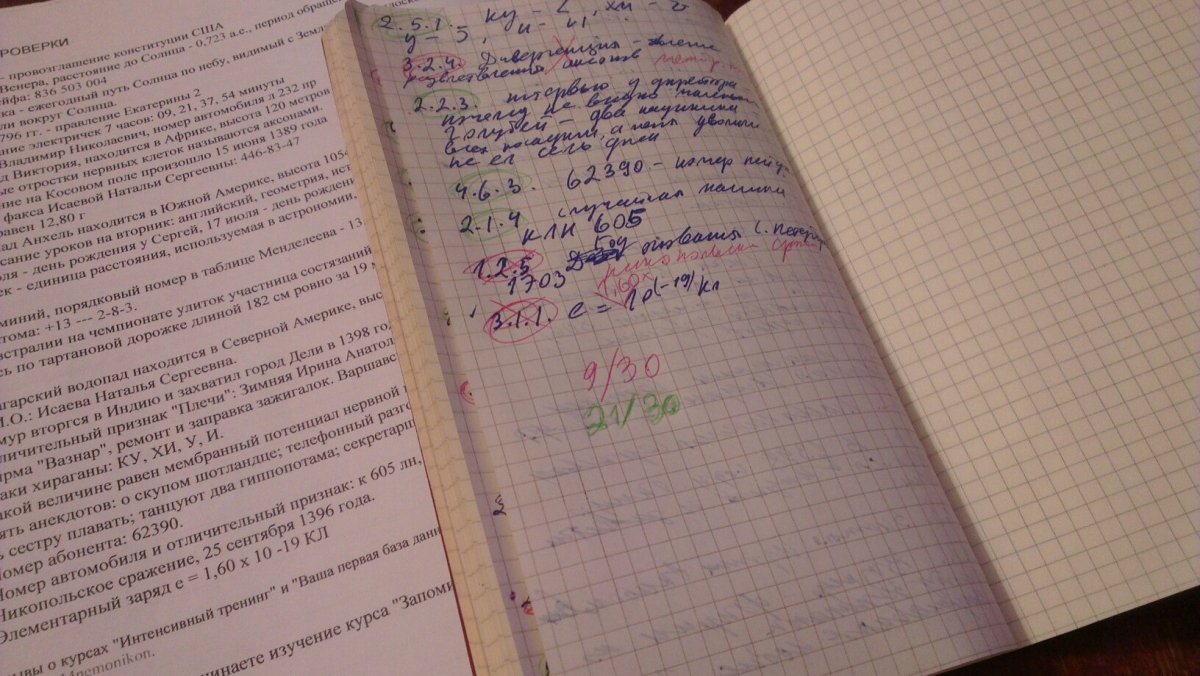 РОВЕРКИ
- провозглашение конституции США
Венера, расстояние до Солнца - 0,723 а.е., период обраще
ейфа: 836 503 004
ка - ежегодный путь Солнца по небу, видимый с Зем
ли вокруг Солнца.
796 гг. - правление Екатерины 2
ание электричек 7 часов: 09, 21, 37, 54 минуты
Владимир Николаевич, номер автомобиля л 232 пр
ад Виктория, находится в Африке, высота 120 метров
ые отростки нервных клеток называются аксонами.
ние на Косовом поле произошло 15 июня 1389 года
факса Исаевой Натальи Сергеевны: 446-83-47
равен 12,80 г
ад Анхель находится в Южной Америке, высота 1054
сание уроков на вторник: английский, геометрия, ист
юля - день рождения у Сергей, 17 июля - день рожден
ек - единица расстояния, используемая в астрономии.
миний, порядковый номер в таблице Менделеева - 13
атома: +13 --- 2-8-3.
встралии на чемпионате улиток участница состязаний
сь по тартановой дорожке длиной 182 см ровно за 19 м
агарский водопад находится в Северной Америке, выс
И.О.: Исаева Наталья Сергеевна.
мур вторгся в Индию и захватил город Дели в 1398 год
личительный признак "Плечи": Зимняя Ирина Анатол
ирма "Вазнар", ремонт и заправка зажигалок. Варшавс
наки хираганы: КУ, ХИ, У, И.
акой величине равен мембранный потенциал нервной к
ять анекдотов: о скупом шотландце; телефонный разго
ь сестру плавать; танцуют два гиппопотама; секретарш
омер абонента: 62390.
Номер автомобиля и отличительный признак: к 605 лн,
Никопольское сражение, 25 сентября 1396 года.
Элементарный заряд e = 1,60 x 10 -19 КЛ
ывы о курсах "Интенсивный тренинг" и "Ваша первая база данн
Mnemonikon.
чинаете изучение курса "Запоми
2.5.1. ку - 2, хи -
у - 5, и - 41
3.2.4. Дивергенция -
разветвления аксонов
2.2.3. интервью у директора
почему не видно
голубей - два
всех посадили, а
не ел семь дней
4.6.3. 62390 - номер
2.1.4 случайная машина
КЛН 605
1.2.5
1703 год
3.1.1. e = 1,60x10(-19) кл
9/30
21/30